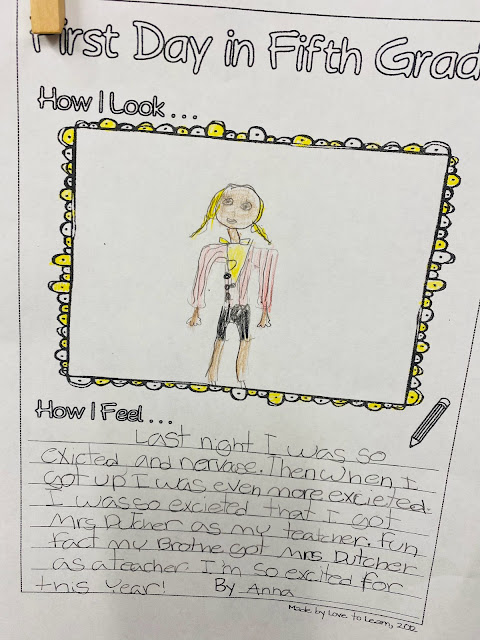 First Day in Fifth Grad
How I Look ...
How I Feel ...
Last night I was so
exicted and nervase. Then when I
got up I was even more excieted.
I was so excieted that I got
Mrs Dutcher as my teatcher. fun
fact my Brothe got Mrs Dutcher
as a teacher I'm so excited for
this Year! By Anna
Made by Love to Learn,